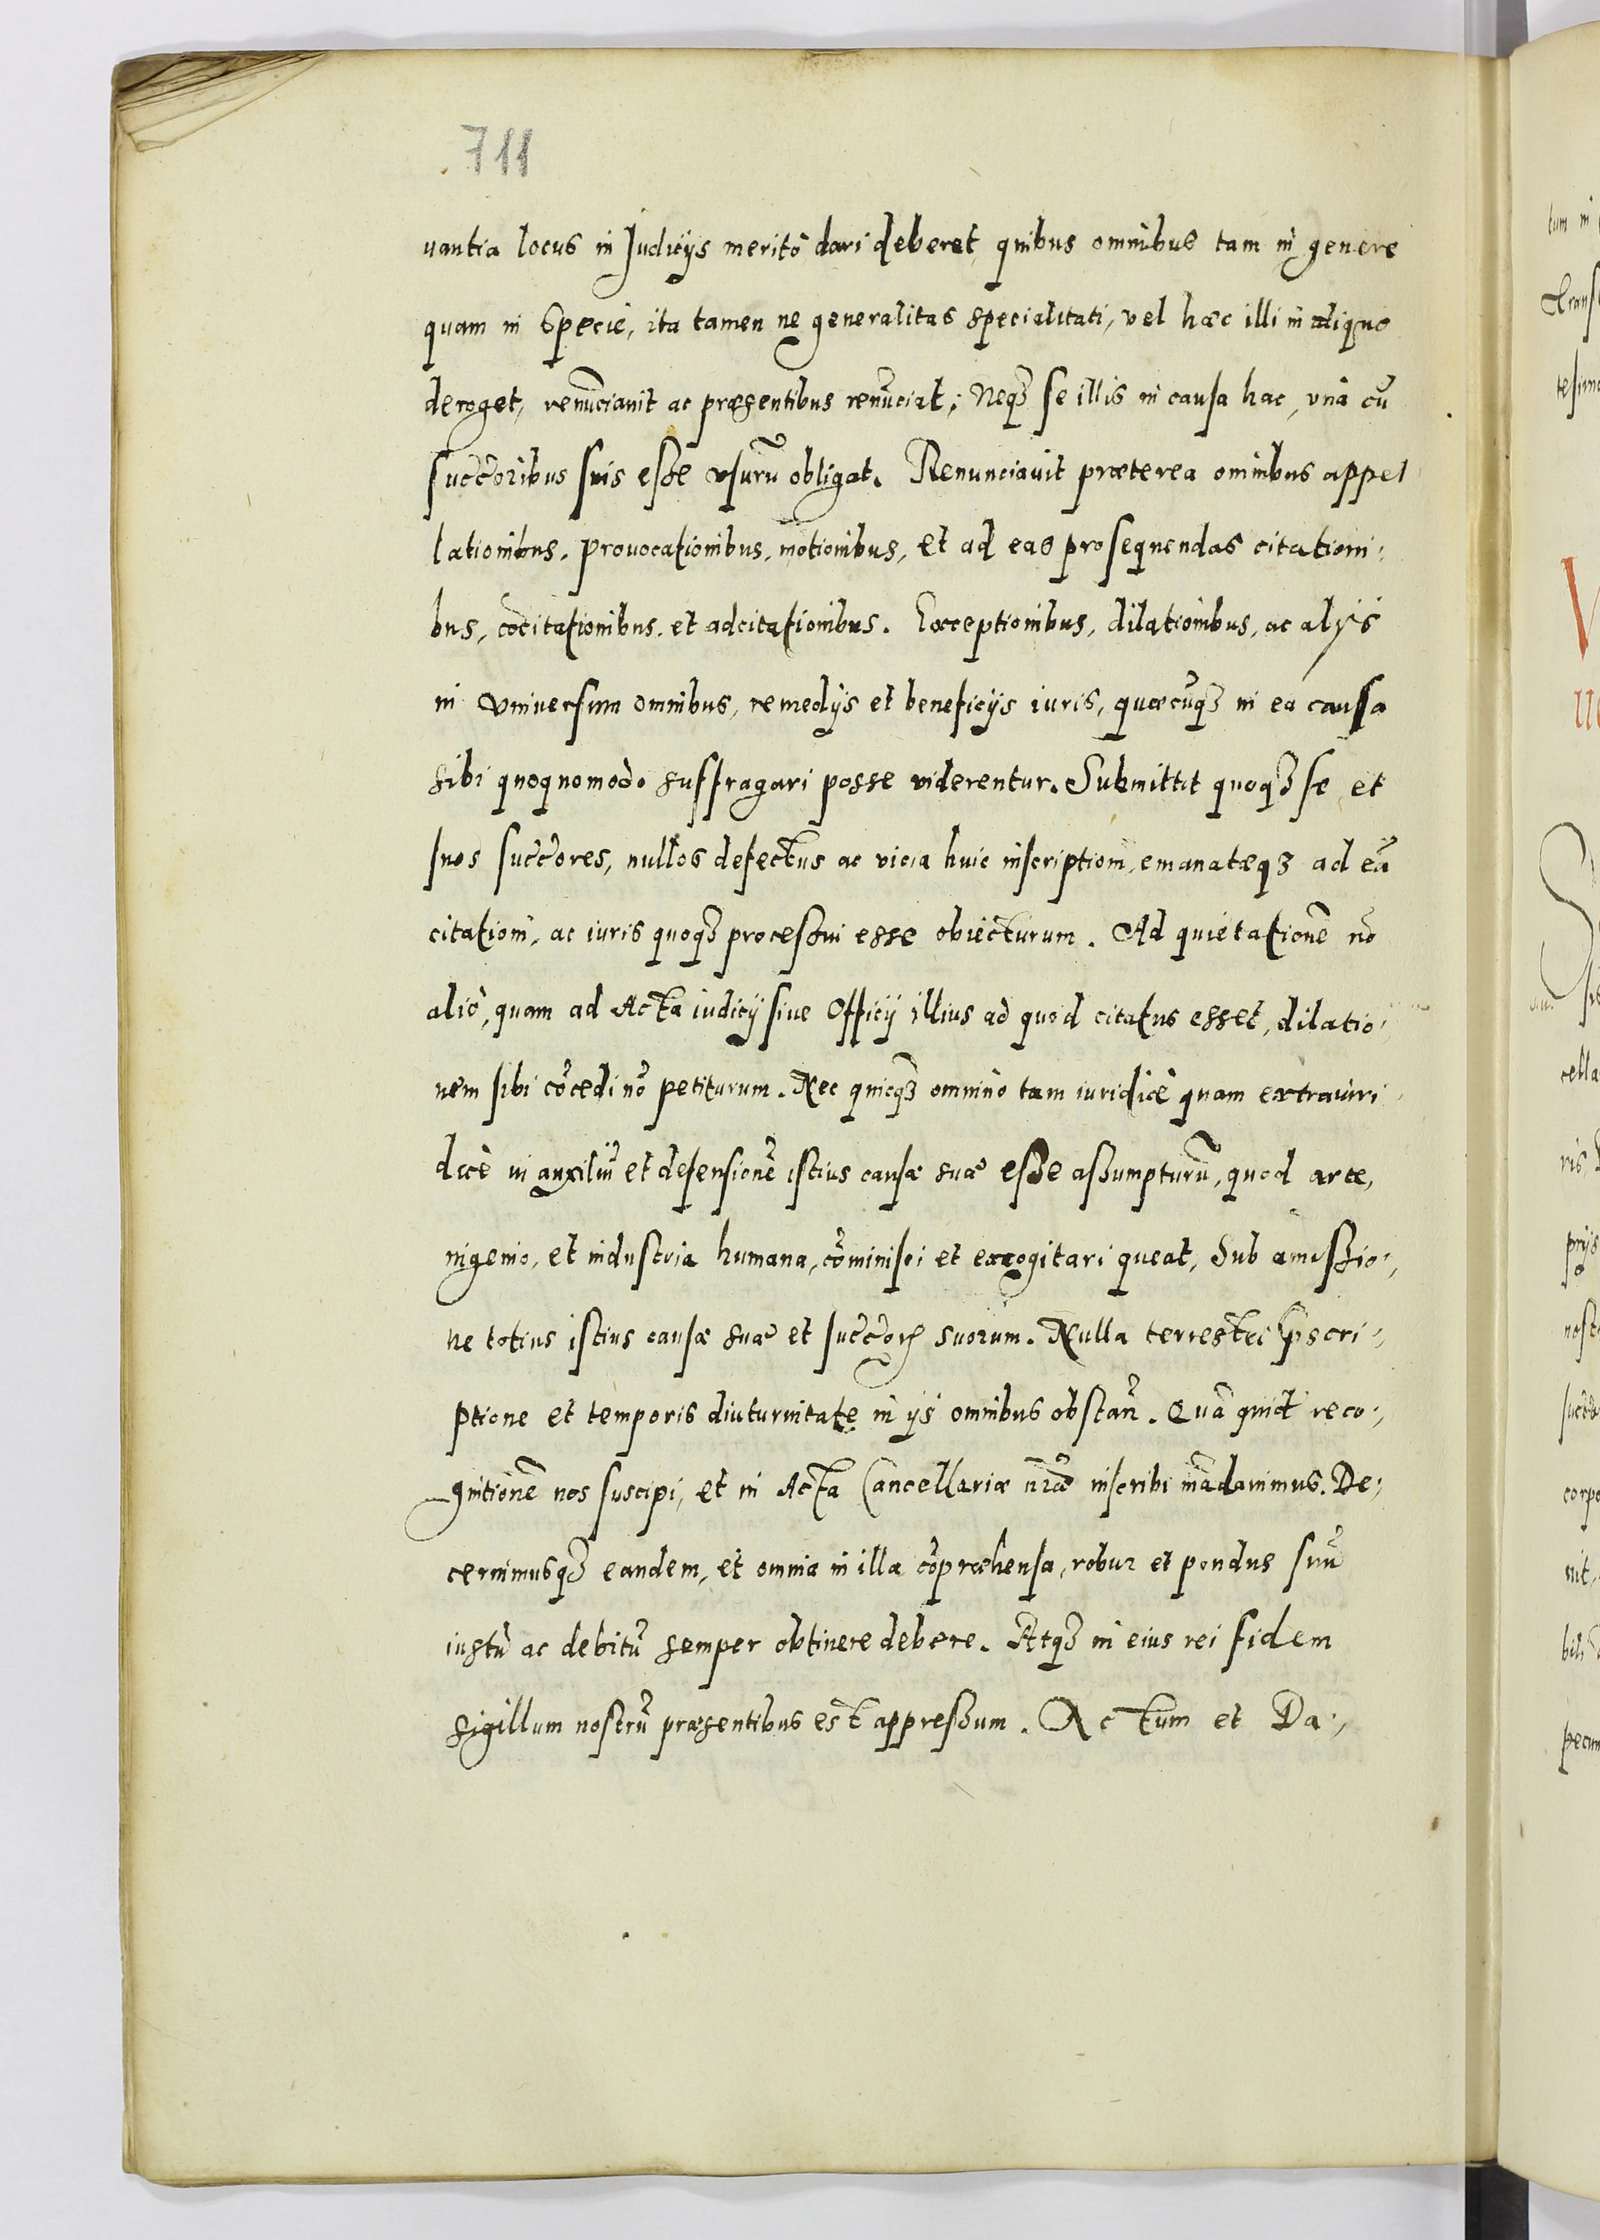 711
uantia locus in Judicijs meritò dari deberet, quibus omnibus tam in genere
quam in Specie, ita tamen ne generalitas specialitati, vel hæc illi in aliquo
deroget, renūciauit ac præsentibus renūciat; Neqȝ se illis in causa hac, vnà cū
succ̄oribus suis esse vsurū obligat. Renunciauit præterea omnibus appel
lationibus, prouocationibus, motionibus, et ad eas prosequendas citationi:
bus, cōcitationibus, et adcitationibus. Exceptionibus, dilationibus, ac alijs
in vniuersum omnibus, remedijs et beneficijs iuris, quæcūqȝ in ea causa
sibi quoquomodo suffragari posse viderentur. Submittit quoqȝ se et
suos succ̄ores, nullos defectus ac vicia huic inscriptioni, emanatæqȝ ad eā
citationi, ac iuris quoqȝ processui esse obiecturum. Ad quietationē nō
aliò, quam ad Acta iudicij siue Officij illius ad quod citatus esset, dilatio:
nem sibi cōcedi nō petiturum. Nec quicqȝ omnino tam iuridicè quam extraiuri
dicè in auxiliū et defensionē istius causæ suæ esse assumpturū, quod arte,
ingenio, et industria humana, cōminisci et excogitari queat, Sub amissio:,
ne totius istius causæ suæ et succ̄orꝝ suorum. Nulla terrestri p̄scri:,
ptione et temporis diuturnitate in ijs omnibus obstan̄. Quā quid̄ reco:,
gnitionē nos suscipi, et in Acta Cancellariæ nr̄æ inscribi mādauimus. De:,
cernimusqȝ eandem, et omnia in illa cōpræhensa, robur et pondus suū
iustū ac debitū semper obtinere debere. Atqȝ in eius rei fidem
sigillum nostrū præsentibus est appressum. Actum et Da:,